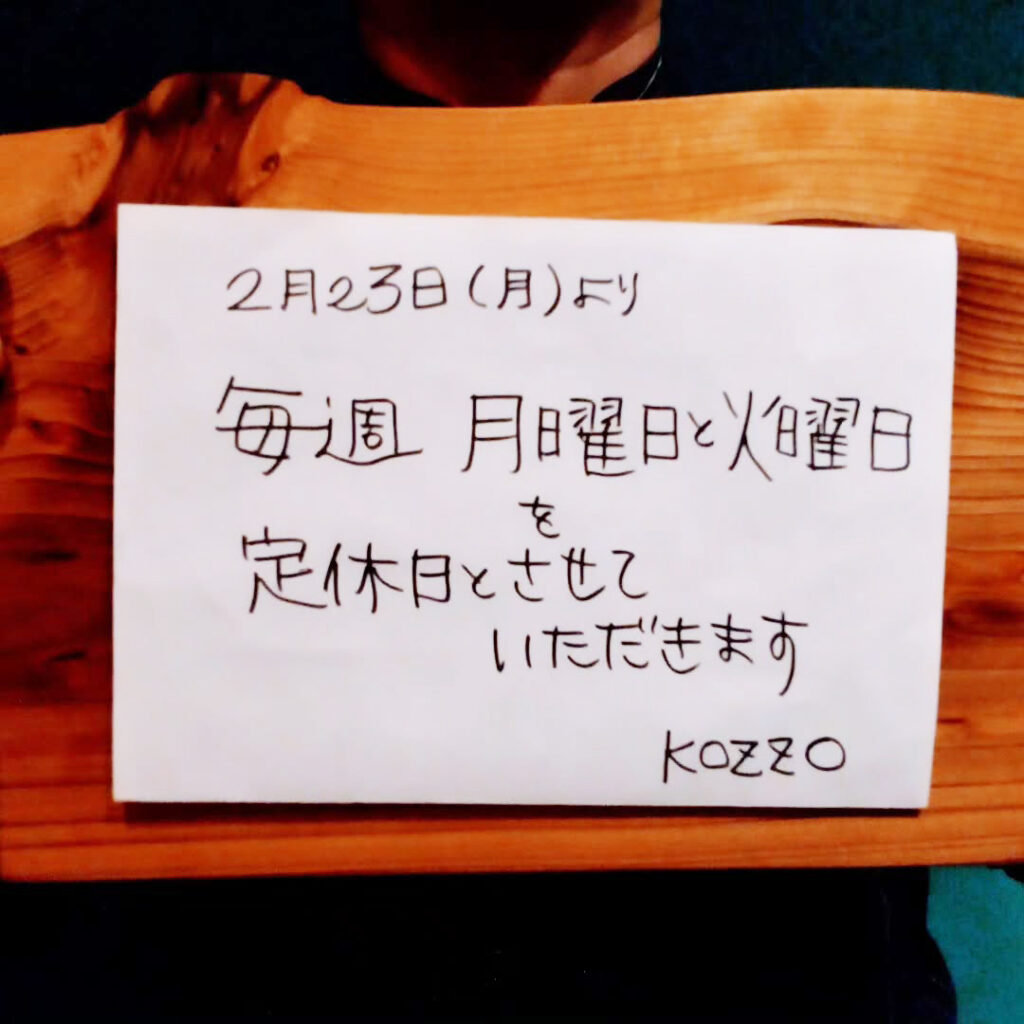 2月23日(月)より
毎週 月曜日と火曜日
を
定休日とさせて
いただきます
KOZZO